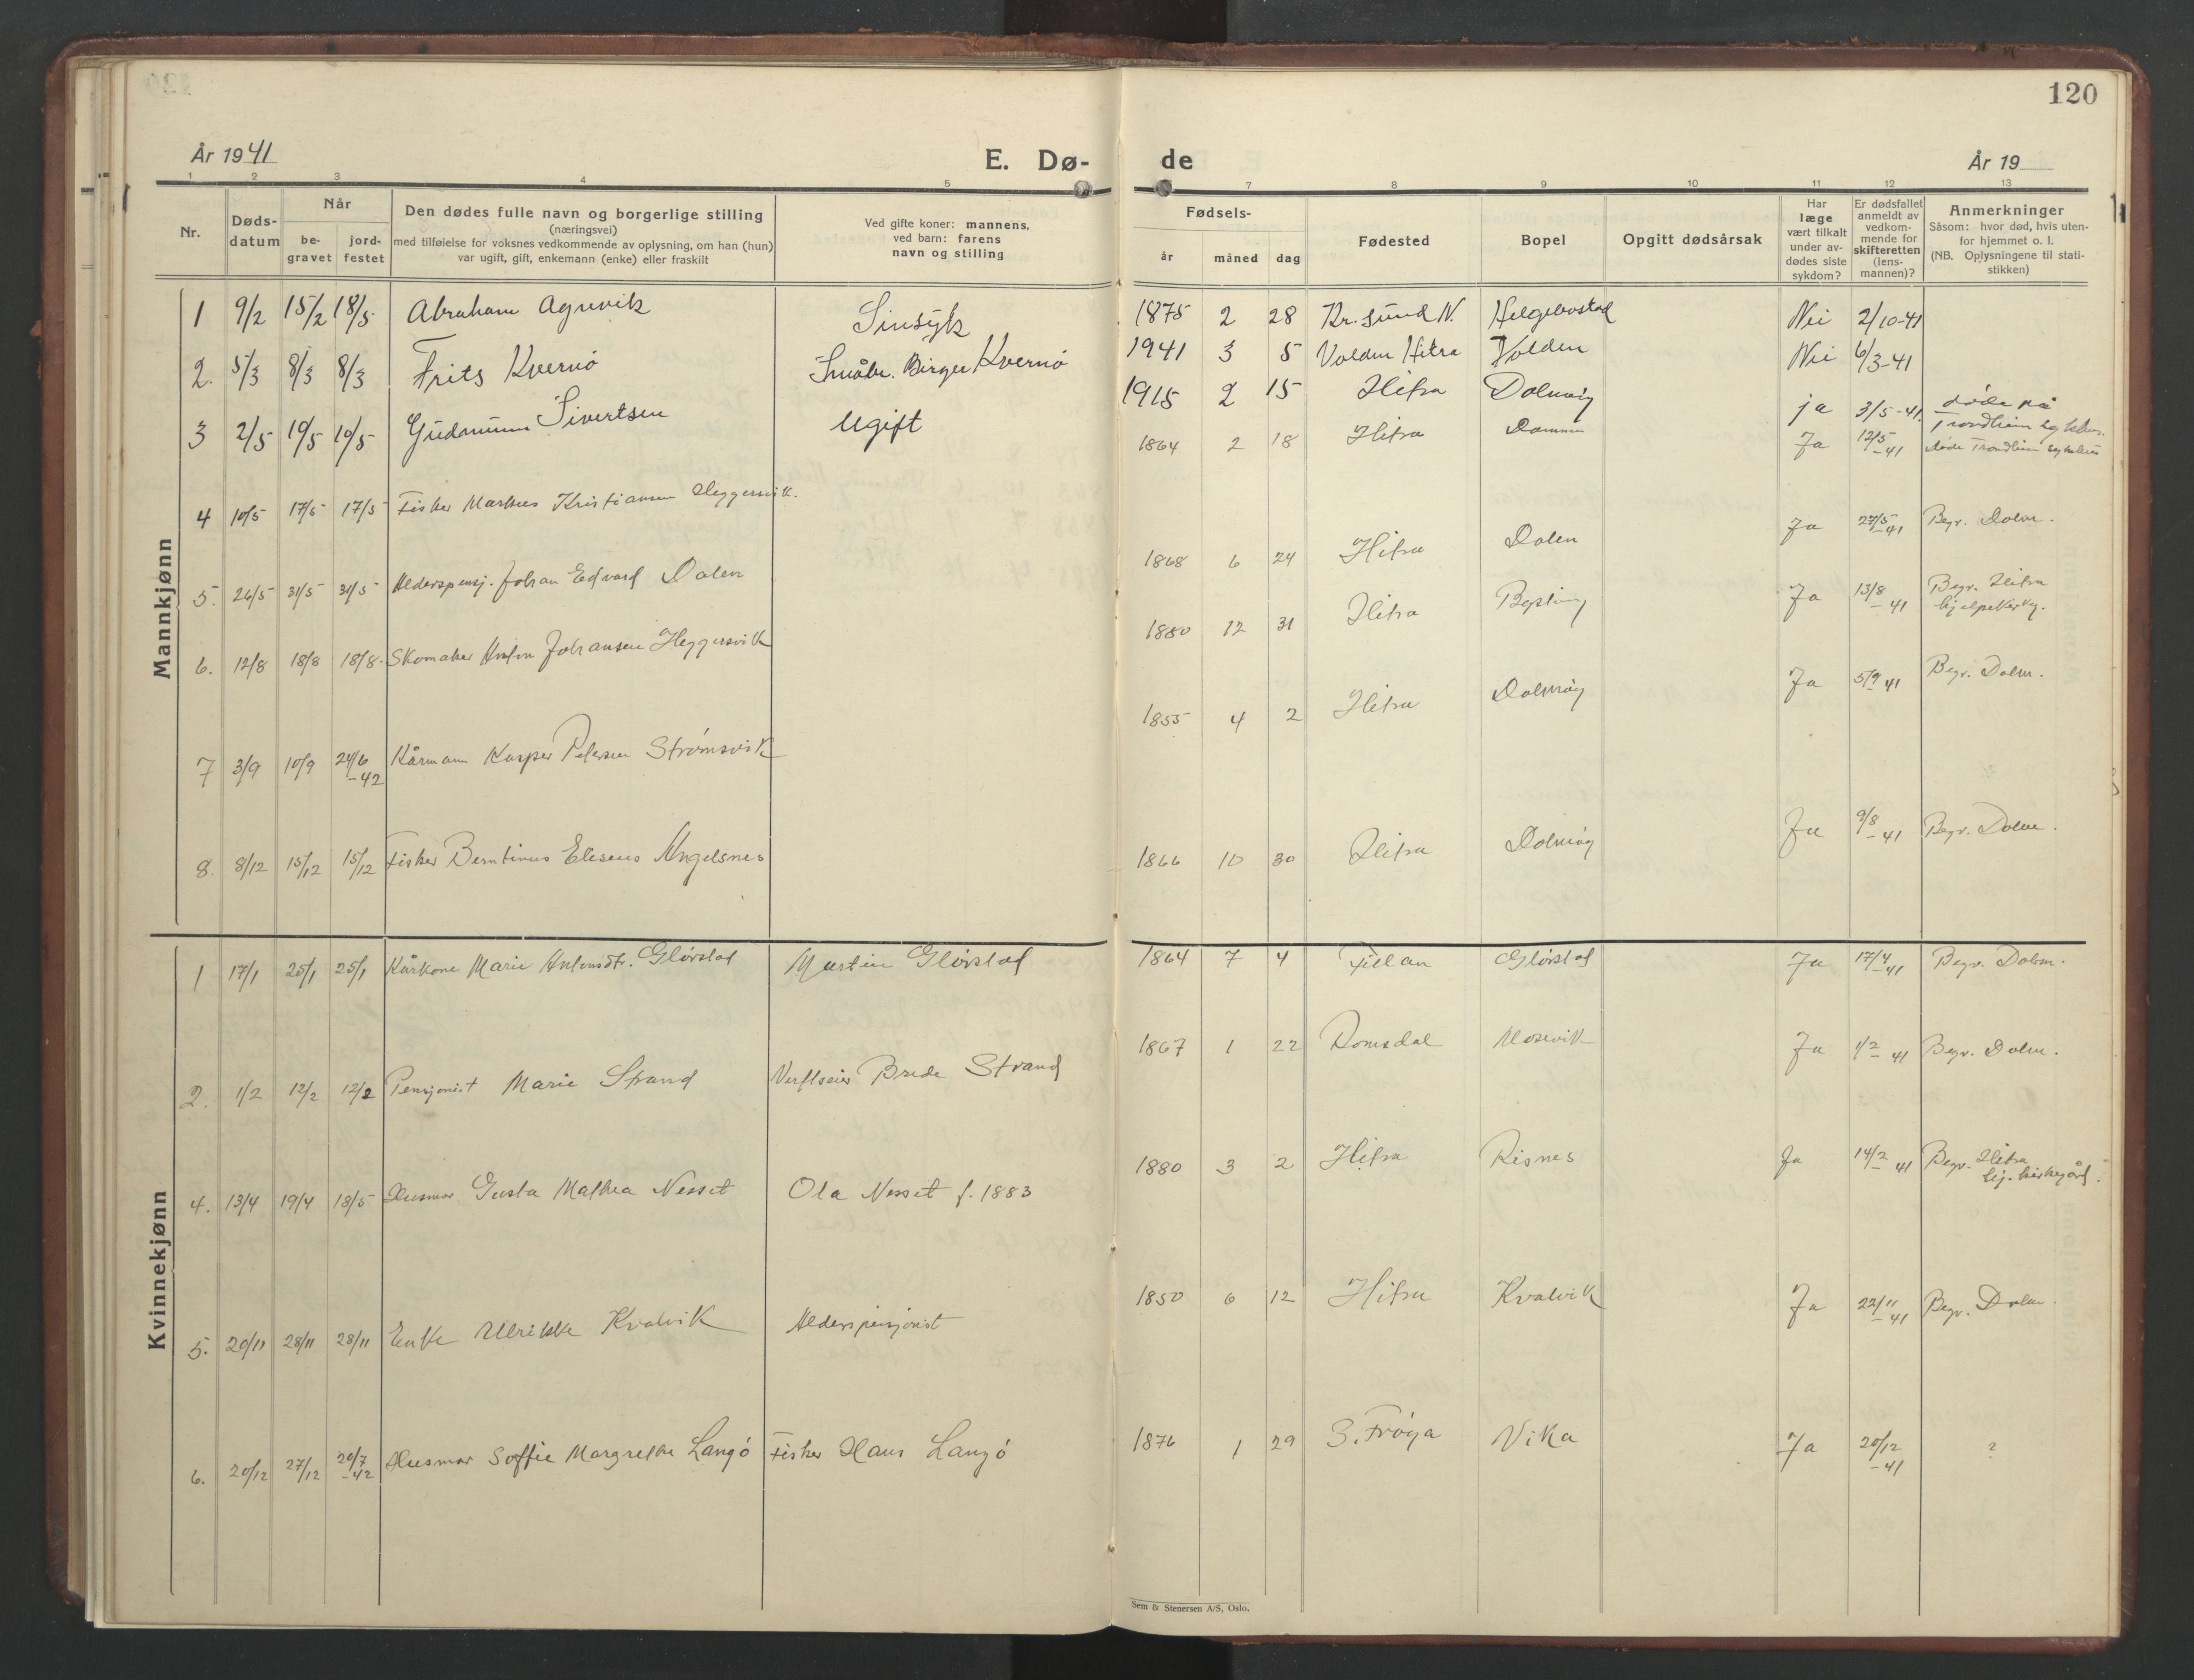 120
År 1941
E. Dø-
de
År 19
1 2 3 4 5 7 8 9 10 11 12 13
Nr.
Døds-
datum
Når
be-
gravet
jord-
festet
Den dødes fulle navn og borgerlige stilling
(næringsvei)
med tilføielse for voksnes vedkommende av oplysning, om han (hun)
var ugift, gift, enkemann (enke) eller fraskilt
Ved gifte koner: mannens,
ved barn: farens
navn og stilling
Fødsels-
år måned dag
Fødested
Bopel
Opgitt dødsårsak
Har
læge
vært tilkalt
under av-
dødes siste
sykdom?
Er dødsfallet
anmeldt av
vedkom-
mende for
skifteretten
(lens-
mannen)?
Anmerkninger
Såsom: hvor død, hvis uten-
for hjemmet o. l.
(NB. Oplysningene til stati-
stikken)
Mannkjønn
1 9/2 15/2 18/5 Abraham Agnvik Sinsyk 1875 2 28 Kr.sund N. Helgebostad Nei 2/10-41
2. 5/3 8/3 8/3 Frits Kvernö Småbr. Birger Kvernö 1941 3 5 Volden Hitra Volden Nei 6/3-41
3 2/5 10/5 10/5 Gudmunn Sivertsen Ugift 1915 2 15 Hitra Dolmöy ja 3/5-41 döde på
Trondheim sykehus.
4 10/5 17/5 17/5 Fisker Markus Kristiansen Heggersvik. 1864 2 18 Hitra Ja 12/5-41 døde Trondheim sykehus
5. 26/5 31/5 31/5 Alderspensj. Johan Edvard Dalen 1868 6 24 Hitra Dalen Ja 27/5-41 Begr. Dolm.
6. 12/8 18/8 18/8 Skomaker Anton Johansen Heggersvik 1880 12 31 Hitra Ja 13/8-41 Begr. Hitra
hjelpekirkeg.
7 3/9 10/9 24/6-42 Kårmann Kasper Petersen Strømsvik 1855 4 2 Hitra Dolmøy Ja 5/9 41 Begr. Dolm.
8. 8/12 15/12 15/12 Fisker Berntinus Eliseus Angelsnes 1866 10 30 Hitra Dolmøy Ja 9/8-41 Begr. Dolm.
Kvinnekjønn
1 17/1 25/1 25/1 Kårkone Marie Antonsdtr. Glørstad Martin Glørstad 1864 7 4 Fillan Glørstad Ja 17/4-41 Begr. Dolm.
2. 1/2 12/2 12/2 Pensjonist Marie Strand Verftseier Brede Strand 1867 1 22 Romsdal Ja 1/2 41 Begr. Dolm.
4. 13/4 19/4 18/5 Husmor Gusta Mathea Nesset Ola Nesset f. 1883 1880 3 2 Hitra Risnes Ja 14/2 41 Begr. Hitra
hj. kirkegård.
5. 20/11 28/11 28/11 Enke Ulrikke Kvalvik Alderspensjonist 1850 6 12 Hitra Kvalvik Ja 22/11-41 Begr. Dolm.
6. 20/12 27/12 20/7-42 Husmor Soffie Margrethe Langö Fisker Hans Langö 1876 1 29 S. Frøya Vika Ja 20/12-41 ?
Sem & Stenersen A/S, Oslo.